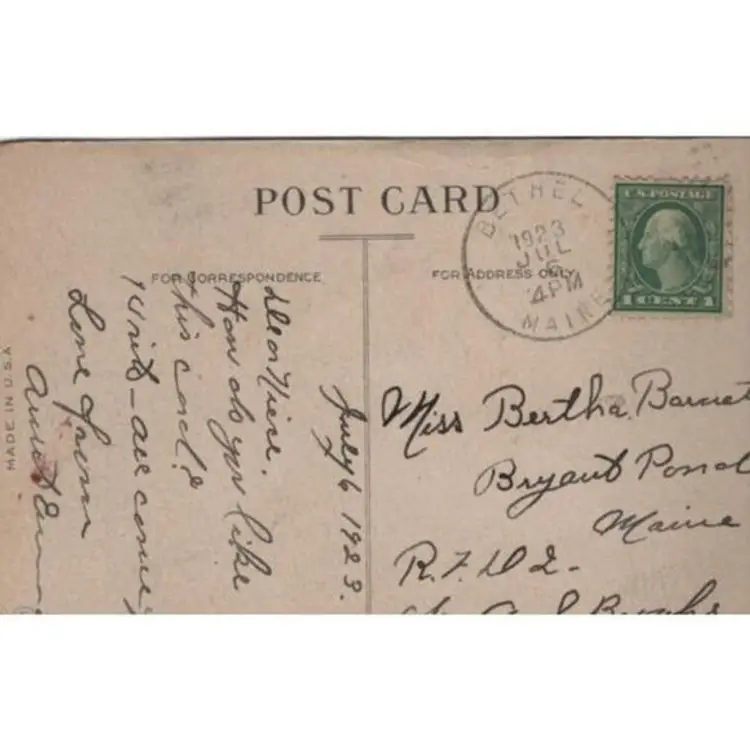 POST CARD
FOR CORRESPONDENCE
FOR ADDRESS ONLY
BETHEL
1923
JUL
6
4PM
MAINE
U.S. POSTAGE
1 CENT 1
MADE IN U.S.A
July 6 1923.
Dear Niece.
How do you like
this card?
Write
Love from
Aunt Emma
Miss Bertha Barnet
Bryant Pond
Maine
R.F.D 2-